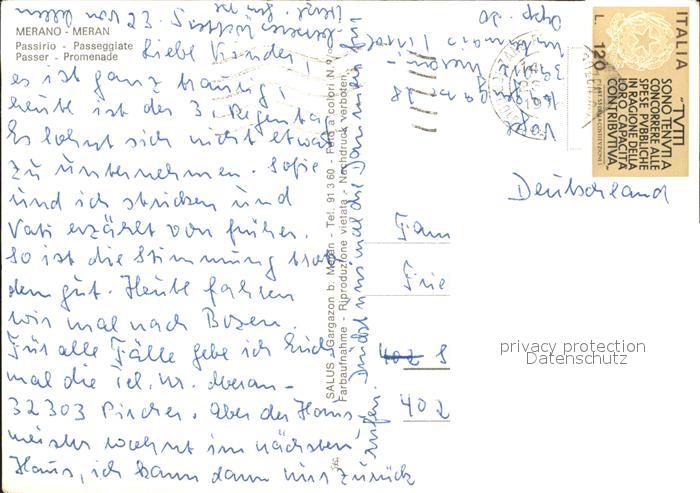 MERANO - MERAN
Passirio - Passeggiate
Passer - Promenade
Liebe Kinder,
es ist ganz traurig,
heute ist der 3. Regentag
Es lohnt sich nicht etwas
zu unternehmen. Sofie
und ich stricken und
Vati erzählt von früher.
So ist die Stimmung trotz
dem gut. Heute fahren
wir mal nach Bozen.
Für alle Fälle gebe ich Euch
mal die Tel. Nr. Meran -
32303 Pircher. Aber der Haus
meister wohnt im nächsten
Haus, ich kann dann nur zurück
rufen.
SALUS - Gargazon b. Meran - Tel. 91 3 60 - Foto a colori N.º
Farbaufnahme - Riproduzione vietata - Nachdruck verboten
ITALIA
L. 120
"TUTTI
SONO TENUTI A
CONCORRERE ALLE
SPESE PUBBLICHE
IN RAGIONE DELLA
LORO CAPACITÀ
CONTRIBUTIVA"
Deutschland
Fam
Frie
402 S
402
privacy protection
Datenschutz